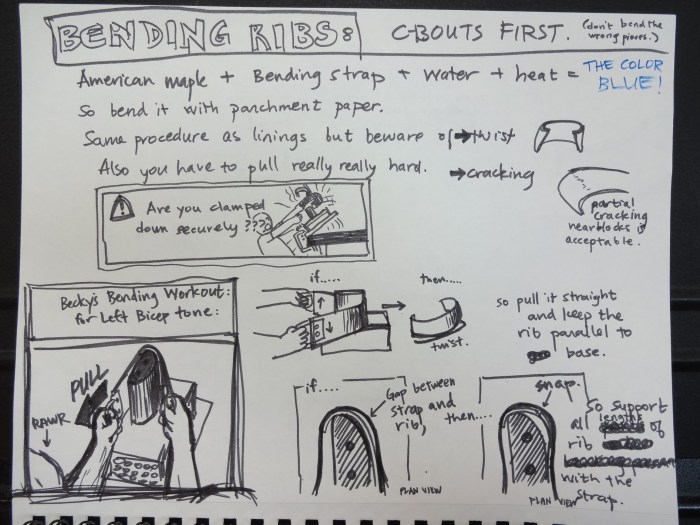 BENDING RIBS: C-BOUTS FIRST. (don't bend the
wrong pieces.)
American maple + Bending strap + water + heat = THE COLOR
BLUE!
So bend it with parchment paper.
Same procedure as linings but beware of → twist
Also you have to pull really really hard. → cracking
partial
cracking
near blocks is
acceptable.
Are you clamped
down securely ???
Becky's Bending Workout:
for Left Bicep tone:
PULL
RAWR
if.....
then.....
twist.
so pull it straight
and keep the
rib parallel to
base.
if....
Gap between
strap and
rib,
PLAN VIEW
then....
snap.
PLAN VIEW
So support
all lengths of
rib
with the
strap.